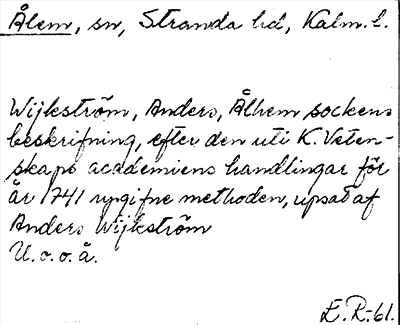 Ålem, sn, Stranda hd, Kalm. l.
Wijkström, Anders, Ålhem sockens
beskrifning, efter den uti K. Veten-
skaps academiens handlingar för
år 1741 upgifne methoden, upsat af
Anders Wijkström
U. o. o. å.
E. R-61.